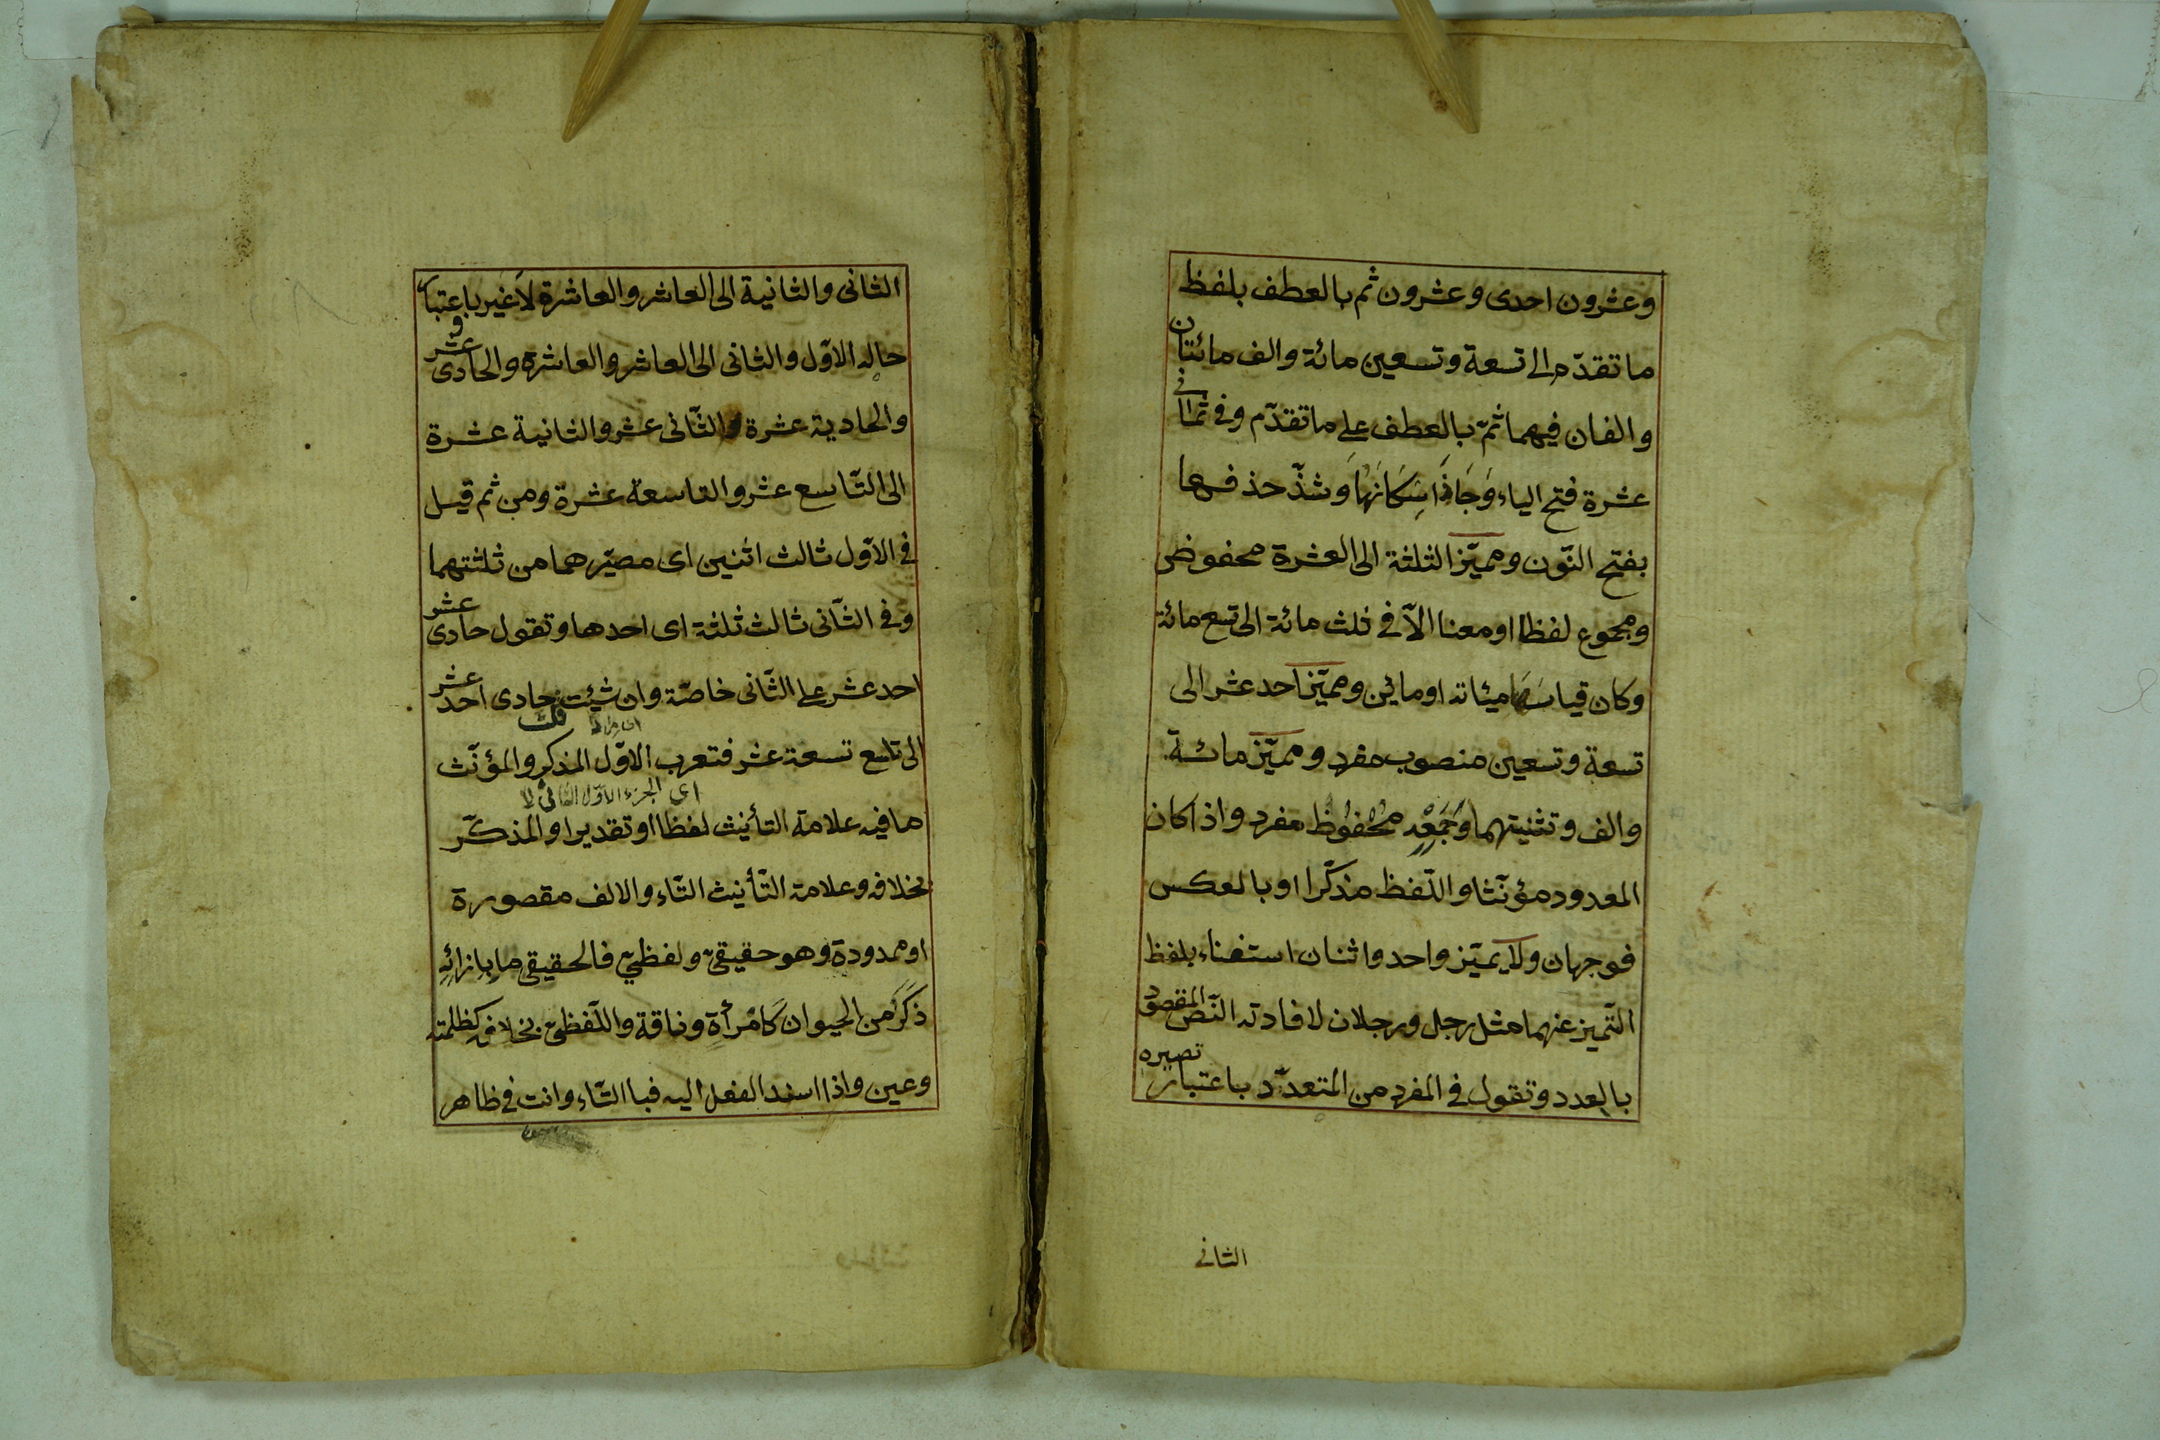 وعشرون احدى وعشرون ثم بالعطف بلفظ
ما تقدّم الى تسعة وتسعين مائة والف مائتان
والفان فيهما ثمّ بالعطف على ما تقدّم وفى ثمانى
عشرة فتح الياء وَجَاذَ اسِكَانَهَا وشذّ حذفها
بفتح النّون ومميّز الثلثة الى العشرة محفوض
ومجموع لفظا او معنا الّا فى ثلث مائة الى تسع مائة
وكان قياسها ميئاته او مائين ومميّز احد عشر الى
تسعة وتسعين منصوب مفرد ومميّز مائة
والف وتثنيتهما وَجَمْعِهِ محْفُوظ مفرد واذا كان
المعدود مؤنّثا واللّفظ مذكّرا او بالعكس
فوجهان ولا يميّز واحد واثنان استغناء بلفظ
التّميز عنهما مثل رجل ورجلان لافادته النّصّ المقصود
بالعدد وتقول فى المفرد من المتعدّد باعتبار تصيره
الثانى
الثانى والثانية الى العاشر والعاشرة لا غير باعتبا
حاله الاوّل والثانى الى العاشر والعاشرة والحادى عشر و
والحادية عشرة والثّانى عشر والثانية عشرة
الى التّاسع عشر والتاسعة عشرة ومن ثم قيل
فى الاوّل ثالث اثنين اى مصيّرهما من ثلثتهما
وفى الثّانى ثالث ثلثة اى احدها وتقول حادى عشر
احد عشر على الثّانى خاصّة وان شئت حادى احد عشر
قلت
الى تاسع تسعة عشر فتعرب الاوّل المذكر والمؤنّث
اى الجزء الاوّل الثانى لا
ما فيه علامة التأنيث لفظا او تقديرا والمذكّر
بخلافه وعلامة التّأنيث التّاء والالف مقصورة
او ممدودة وهو حقيقىّ ولفظىّ فالحقيقى ما بازائِهِ
ذكَرٌ من الحيوان كَامْرأةٍ وناقة واللّفظىّ بخلافه كظلمته
وعين واذا اسند الفعل اليه فبا التّاء وانت فى ظاهر